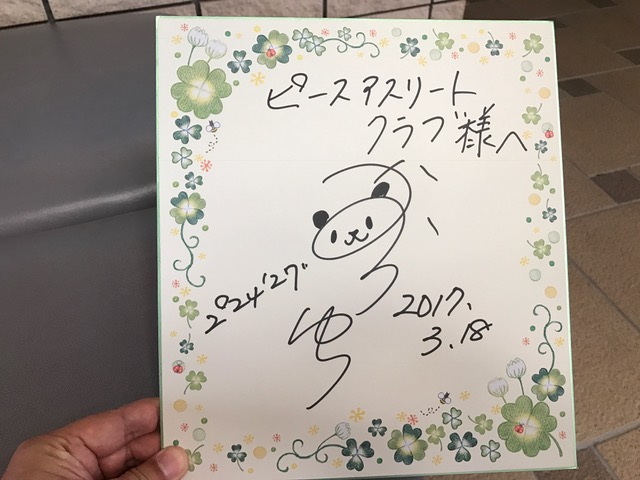 ピースアスリート
クラブ様へ
2°24'27"
2017.
3.18